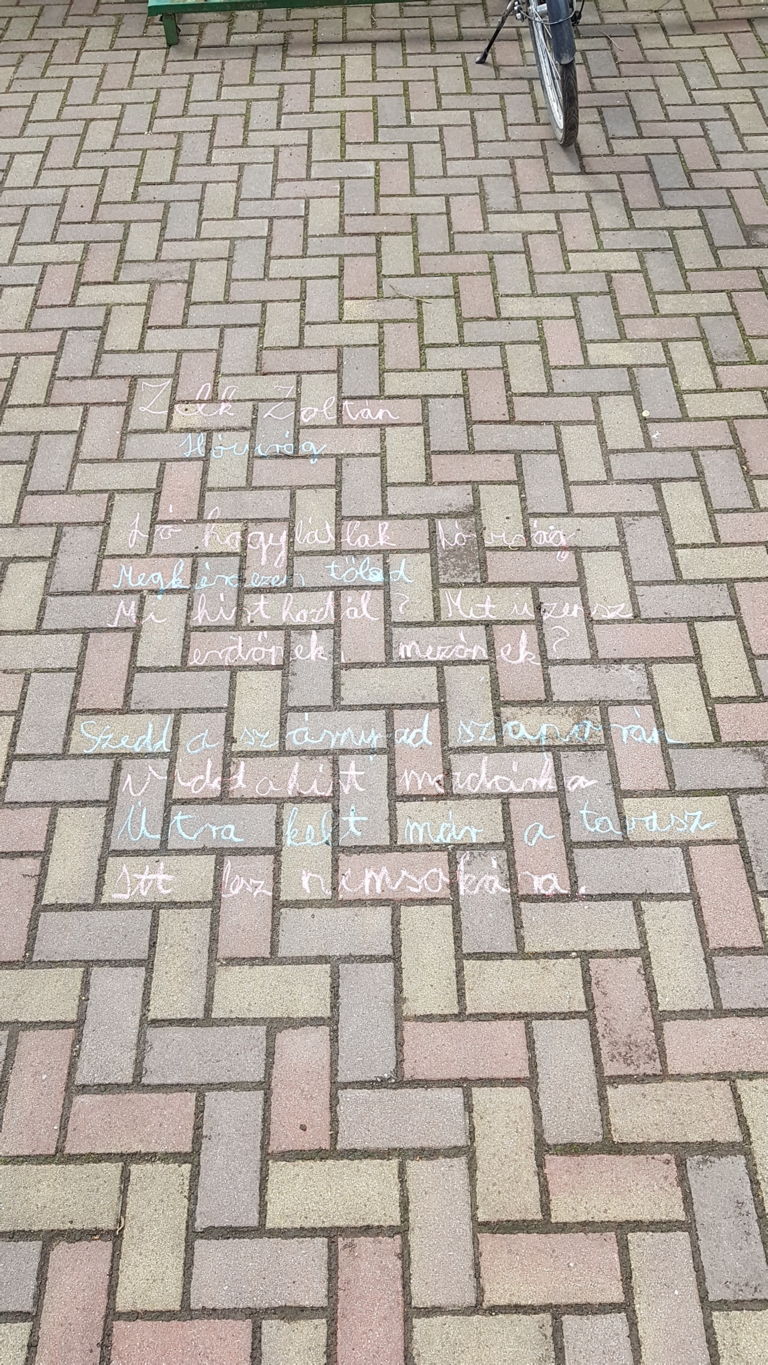 Zelk Zoltán
Hóvirág
Jó hogy látlak hóvirág
Megkérdezem tőled
Mi hírt hoztál? Mit üzensz
erdőnek, mezőnek?
Szedd a szárnyad szaporán
Vidd a hírt madárka
Útra kelt már a tavasz
Itt lesz nemsokára.